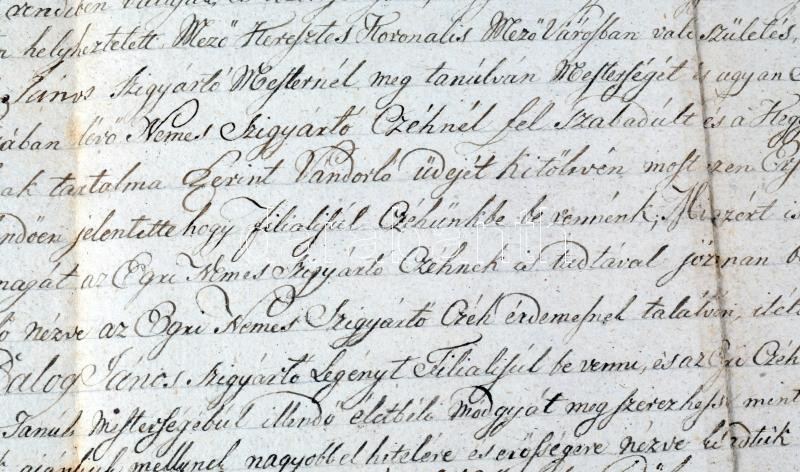 helyheztetett Mező Keresztes Koronalis Mező Városban való születés,
János Szigyártó Mesternél meg tanúlván Mesterségét is ugyan
jában lévő Nemes Szigyártó Czéhnél fel szabadúlt és a
ak tartalma Szerint Vándorló üdejét kitölvén most ezen
endően jelentette hogy filialisúl Czéhünkbe be vennénk, Miszért is
magát az Egri Nemes Szigyártó Czéhnek is tudtával józanan
ó nézve az Egri Nemes Szigyártó Czéh érdemesnek talátván,
Balog János Szigyártó Legényt Filialisúl be venni, és az Egri Czéh
Tanúlt Mesterségebúl illendő életbéli Modgyát meg szerezhesse mint
mellynek nagyobbel hitelére és erősségere nézve